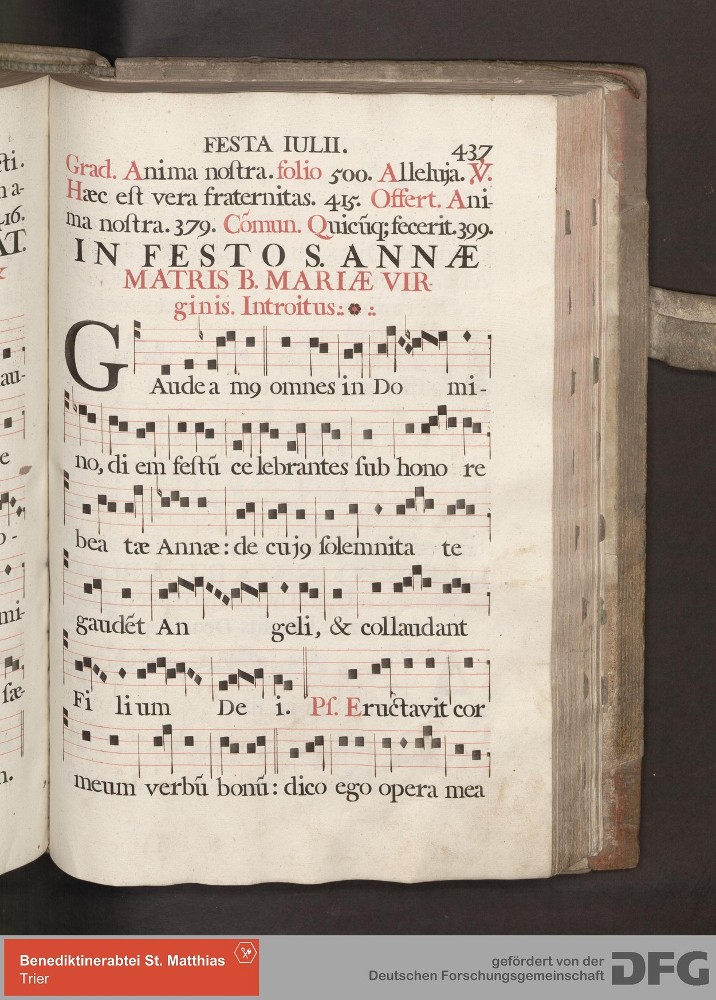 FESTA IULII. 437
Grad. Anima noſtra. folio 500. Alleluja. ℣.
Hæc eſt vera fraternitas. 415. Offert. Ani-
ma noſtra. 379. Cõmun. Quicũq; fecerit. 399.
IN FESTO S. ANNÆ
MATRIS B. MARIÆ VIR-
ginis. Introitus.
GAudea mꝰ omnes in Do mi-
no, di em feſtũ ce lebrantes ſub hono re
bea tæ Annæ: de cujꝰ ſolemnita te
gaudẽt An geli, & collaudant
Fi lium De i. Pſ. Eructavit cor
meum verbũ bonũ: dico ego opera mea
cti.
a-
416.
AT.
au-
e
o-
mi-
ſæ-
n.
Benediktinerabtei St. Matthias
Trier
gefördert von der
Deutschen Forschungsgemeinschaft
DFG